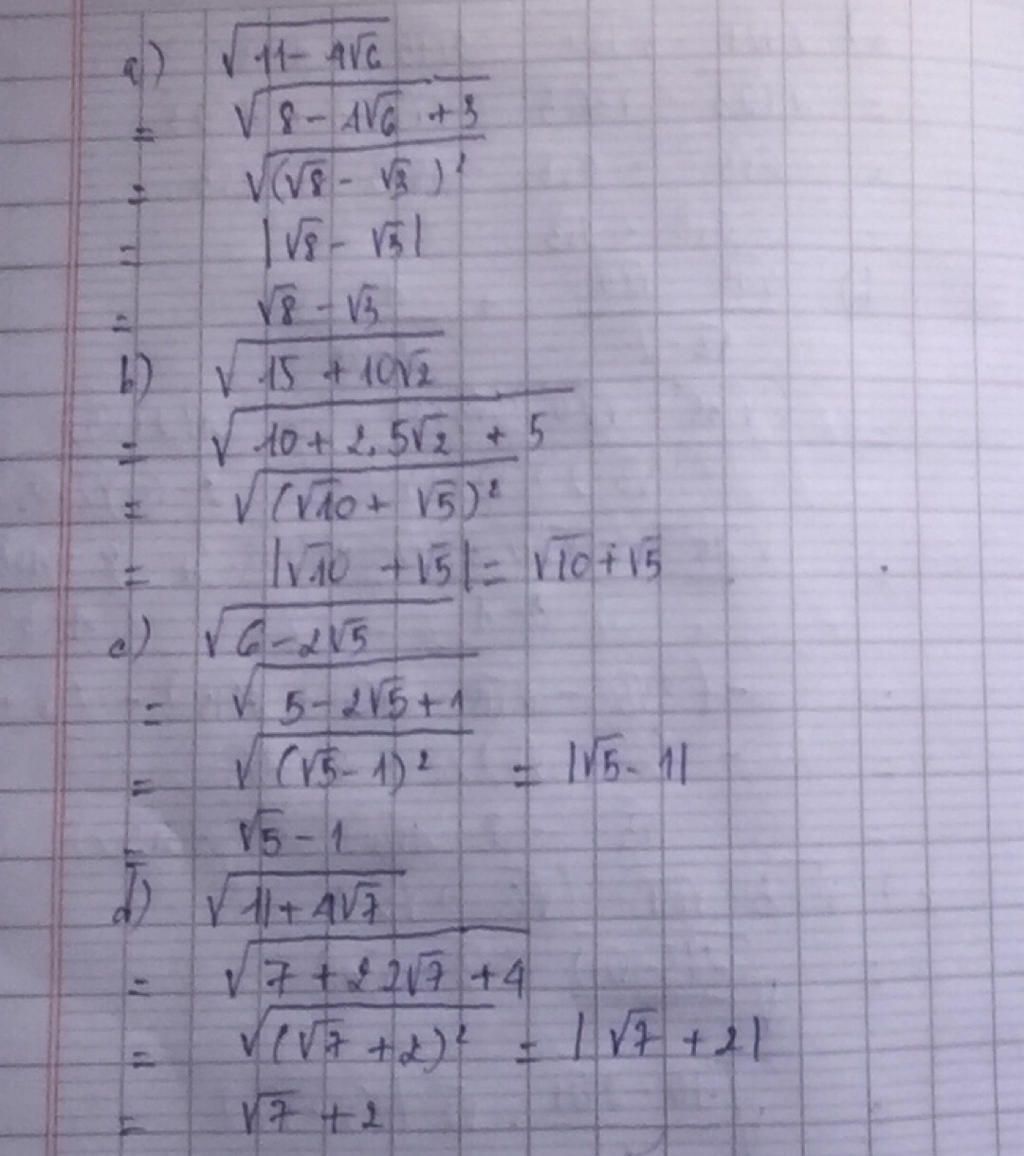 a) √(11 - 4√6)
= √(8 - 4√6 + 3)
= √((√8 - √3)²)
= |√8 - √3|
= √8 - √3
b) √(15 + 10√2)
= √(10 + 2.5√2 + 5)
= √((√10 + √5)²)
= |√10 + √5| = √10 + √5
c) √(6 - 2√5)
= √(5 - 2√5 + 1)
= √((√5 - 1)²) = |√5 - 1|
= √5 - 1
d) √(11 + 4√7)
= √(7 + 2 2√7 + 4)
= √((√7 + 2)²) = |√7 + 2|
= √7 + 2